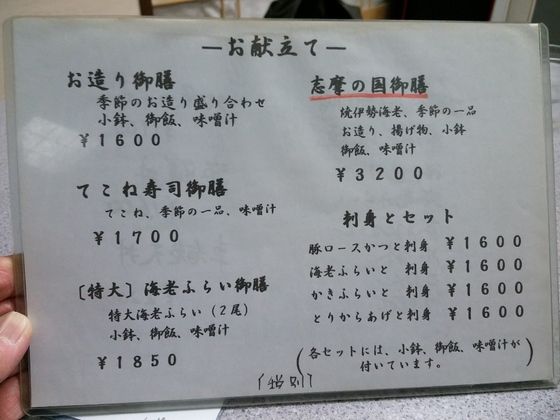 ―お献立て―
お造り御膳
季節のお造り盛り合わせ
小鉢、御飯、味噌汁
￥1600
てこね寿司御膳
てこね、季節の一品、味噌汁
￥1700
〔特大〕海老ふらい御膳
特大海老ふらい（2尾）
小鉢、御飯、味噌汁
￥1850
志摩の国御膳
焼伊勢海老、季節の一品
お造り、揚げ物、小鉢
御飯、味噌汁
￥3200
刺身とセット
豚ロースかつと刺身 ￥1600
海老ふらいと 刺身 ￥1600
かきふらいと 刺身 ￥1600
とりからあげと刺身 ￥1600
（各セットには、小鉢、御飯、味噌汁が
付いています。）
〔税別〕